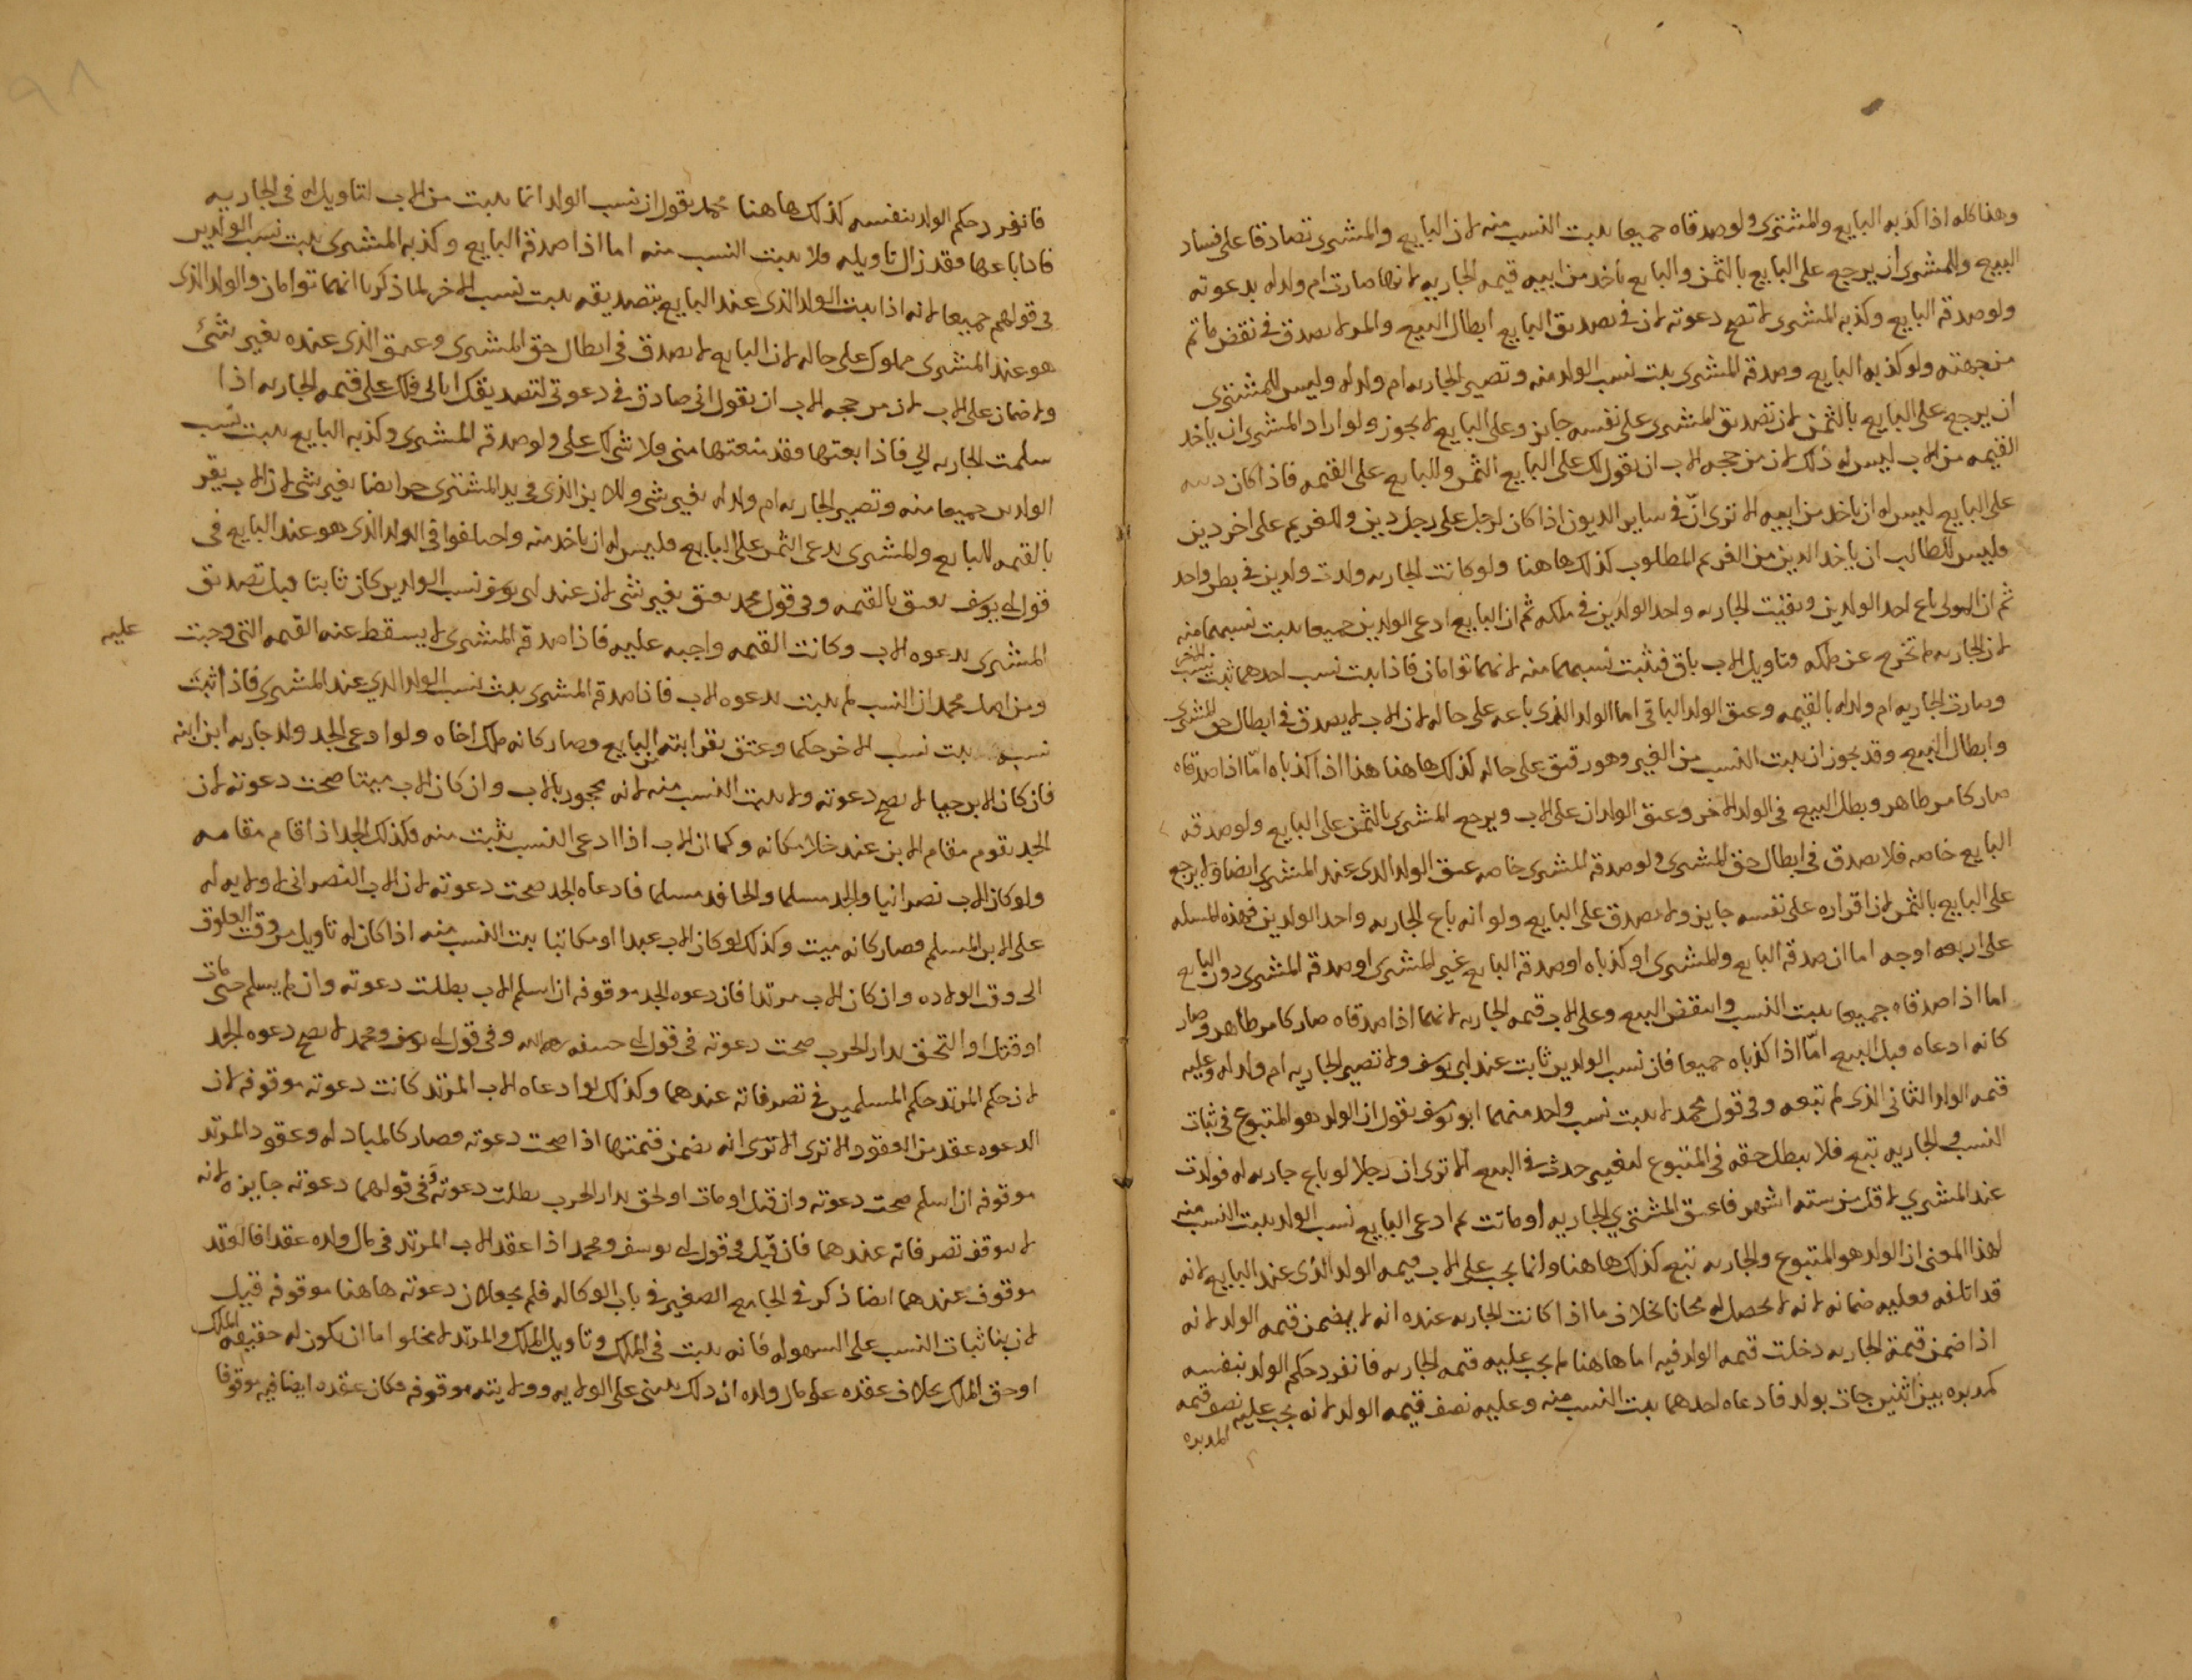 وهذا كله اذا كذبه البايع والمشترى ولو صدقاه جميعا يثبت النسب منه لان البايع والمشترى تصادقا على فساد
البيع وللمشترى ان يرجع على البايع بالثمن والبايع ياخد من ابيه قيمه الجاريه لانها صارت ام ولد له بدعوته
ولو صدقه البايع وكذبه المشترى لا تصح دعوته لان فى تصديق البايع ابطال البيع والمر لا يصدق فى نقض ما تم
من جهته ولو كذبه البايع وصدقه المشترى يثبت نسب الولد منه وتصير الجاريه ام ولد له وليس للمشترى
ان يرجع على البايع بالثمن لان تصديق المشترى على نفسه جايز وعلى البايع لا يجوز ولو اراد المشترى ان ياخد
القيمه من الاب ليس له ذلك لان من حجه الاب ان يقول لك على البايع الثمن وللبايع على القيمه فاذا كان دينه
على البايع ليس له ان ياخد من ابيه الا ترى انّ فى ساير الديون اذا كان لرجل على رجل دين وللغريم على اخر دين
فليس للطالب ان ياخد الدين من الغريم المطلوب كذلك هاهنا ولو كانت الجاريه ولدت ولدين فى بطن واحد
ثم ان المولى باع احد الولدين وبقيت الجاريه واحد الولدين فى ملكه ثم ان البايع ادعى الولدين جميعا يثبت نسبهما منه
لان الجاريه لم تخرج عن ملكه وتاويل الاب باق فيثبت نسبهما منه لانهما توامان فاذا يثبت نسب احدهما ثبت نسب الاخر
وصارت الجاريه ام ولد له بالقيمه وعتق الولد الباقى اما الولد الذى باعه على حاله لان الاب لا يصدق فى ابطال حق المشترى
وابطال البيع وقد يجوز ان يثبت النسب من الغير وهو رقيق على حاله كذلك هاهنا هذا اذا كذباه امّا اذا صدقاه
صار كامر ظاهر وبطل البيع فى الولد الاخر وعتق الولدان على الاب ويرجع المشترى بالثمن على البايع ولو صدقه
البايع خاصه فلا يصدق فى ابطال حق المشترى ولو صدقه المشترى خاصه عتق الولد الذى عند المشترى ايضا ولا يرجع
على البايع بالثمن لان اقراره على نفسه جايز ولا يصدق على البايع ولو انه باع الجاريه واحد الولدين فهذه المسله
على اربعه اوجه اما ان صدقه البايع والمشترى او كذباه او صدقه البايع غير المشترى او صدقه المشترى دون البايع
اما اذا صدقاه جميعا يثبت النسب وانتقض البيع وعلى الاب قيمه الجاريه لانهما اذا صدقاه صار كامر ظاهر وصار
كانه ادعاه قبل البيع امّا اذا كذباه جميعا فان نسب الولدين ثابت عند ابى يوسف ولا تصير الجاريه ام ولد له وعليه
قيمه الولد الثانى الذى لم تبعه وفى قول محمد لا يثبت نسب واحد منهما ابو يوسف يقول ان الولد هو المتبوع فى ثبات
النسب والجاريه تبع فلا يبطل حقه فى المتبوع لتغيير حدث فى البيع الا ترى ان رجلا لو باع جاريه له فولدت
عند المشترى لاقل من سته اشهر فاعتق المشترى الجاريه او ماتت ثم ادعى البايع نسب الولد يثبت النسب منه
لهذا المعنى ان الولد هو المتبوع والجاريه تبع كذلك هاهنا وانما يجب على الاب قيمه الولد الذى عند البايع لانه
قد اتلفه فعليه ضمانه لانه لا يحصل له مجانا بخلاف ما اذا كانت الجاريه عنده انه لا يضمن قيمه الولد لانه
اذا ضمن قيمة الجاريه دخلت قيمه الولد فيه اما هاهنا لم يجب عليه قيمه الجاريه فانفرد حكم الولد بنفسه
كمدبره بين اثنين جات بولد فادعاه احدهما يثبت النسب منه وعليه نصف قيمه الولد لانه يجب عليه نصف قيمه
المدبره
فانفرد حكم الولد بنفسه كذلك هاهنا محمد يقول ان نسب الولد انما يثبت من الاب لتاويل له فى الجاريه
فاذا باعها فقد زال تاويله فلا يثبت النسب منه اما اذا صدقه البايع وكذبه المشترى يثبت نسب الولدين
فى قولهم جميعا لانه اذا يثبت الولد الذى عند البايع بتصديقه يثبت نسب الاخر لما ذكرنا انهما توامان والولد الذى
هو عند المشترى مملوك على حاله لان البايع لا يصدق فى ابطال حق المشترى وعتق الذى عنده بغير شئ
ولا ضمان على الاب لان من حجه الاب ان يقول انى صادق فى دعوتى لتصديقك اياى فلك على قيمه الجاريه اذا
سلمت الجاريه الى فاذا بعتها فقد منعتها منى فلا شى لك على ولو صدقه المشترى وكذبه البايع يثبت نسب
الولدين جميعا منه وتصير الجاريه ام ولد له بغير شى وللابن الذى فى يد المشترى حر ايضا بغير شى لان الاب يقر
بالقيمه للبايع والمشترى يدعى الثمن على البايع فليس له ان ياخد منه واختلفوا فى الولد الذى هو عند البايع فى
قول ابى يوسف يعتق بالقيمه وفى قول محمد يعتق بغير شى لان عند ابى يوسف نسب الولدين كان ثابتا قبل تصديق
المشترى بدعوه الاب وكانت القيمه واجبه عليه فاذا صدقه المشترى لا يسقط عنه القيمه التى وجبت عليه
ومن اصل محمد ان النسب لم يثبت بدعوه الاب فاذا صدقه المشترى يثبت نسب الولد الذى عند المشترى فاذا ثبت
نسبه يثبت نسب الاخر حكما وعتق بقرابته من البايع وصار كانه ملك اخاه ولو ادعى الجد ولد جاريه ابن ابنه
فان كان الابن حيا لا تصح دعوته ولا يثبت النسب منه لانه محجوب بالاب وان كان الاب ميتا صحت دعوته لان
الجد يقوم مقام الابن عند خلا مكانه وكما ان الاب اذا ادعى النسب يثبت منه فكذلك الجد اذا قام مقامه
ولو كان الاب نصرانيا والجد مسلما والحافد مسلما فادعاه الجد صحت دعوته لان الاب النصرانى لا ولايه له
على الابن المسلم فصار كانه ميت وكذلك لو كان الاب عبدا او مكاتبا يثبت النسب منه اذا كان له تاويل من وقت العلوق
الى وقت الولاده وان كان الاب مرتدا فان دعوه الجد موقوفه ان اسلم الاب بطلت دعوته وان لم يسلم حتى مات
او قتل او التحق بدار الحرب صحت دعوته فى قول ابى حنيفه رحمه الله وفى قول ابى يوسف ومحمد لا تصح دعوه الجد
لان حكم المرتد حكم المسلمين فى تصرفاته عندهما وكذلك لو ادعاه الاب المرتد كانت دعوته موقوفه لان
الدعوه عقد من العقود الا ترى الا ترى انه يضمن قيمتها اذا صحت دعوته فصار كالمبادله وعقود المرتد
موقوفه ان اسلم صحت دعوته وان قتل او مات او لحق بدار الحرب بطلت دعوته وفى قولهما دعوته جايزه لانه
لا يوقف تصرفاته عندهما فان قيل فى قول ابى يوسف ومحمد اذا عقد الاب المرتد فى مال ولده عقدا فالعقد
موقوف عندهما ايضا ذكر فى الجامع الصغير فى باب الوكاله فلم يجعلان دعوته هاهنا موقوفه قيل
لان بنا ثبات النسب على السهوله فانه يثبت فى الملك وتاويل الملك والمرتد لا يخلو اما ان يكون له حقيقه الملك
او حق الملك بخلاف عقده على مال ولده ان ذلك يبنى على الولايه وولايته موقوفه فكان عقده ايضا فيه موقوفا